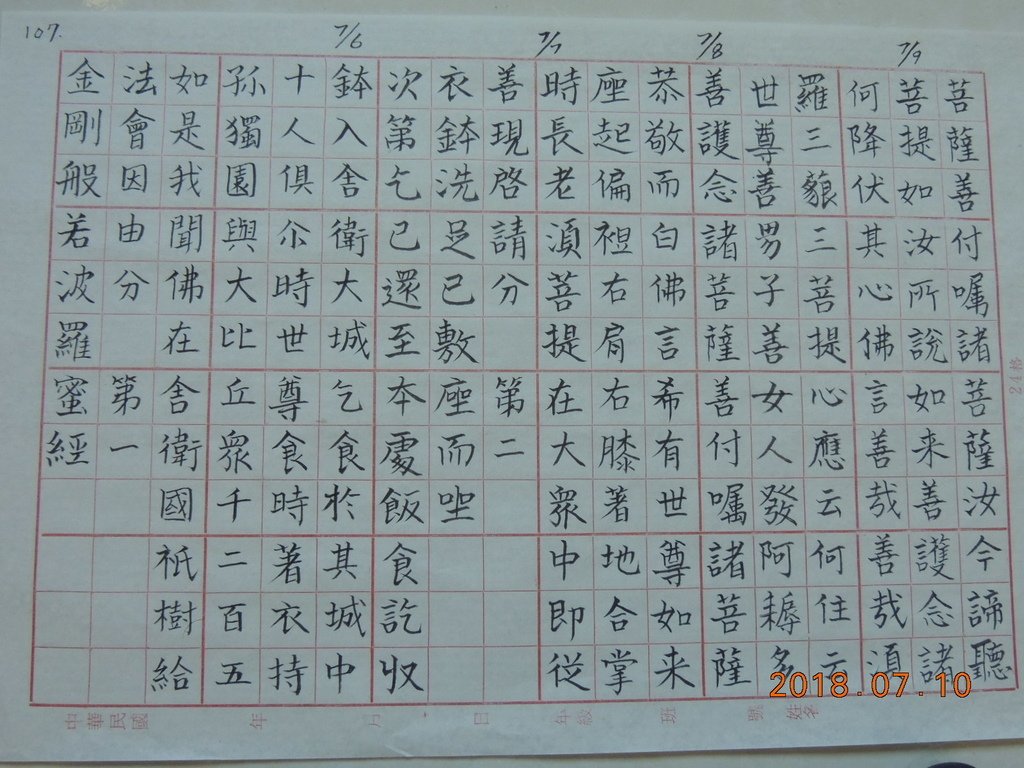 107.
7/6
7/7
7/8
7/9
金剛般若波羅蜜經
法會因由分 第一
如是我聞佛在舍衛國祇樹給
孤獨園與大比丘眾千二百五
十人俱尒時世尊食時著衣持
鉢入舍衛大城乞食於其城中
次第乞已還至本處飯食訖収
衣鉢洗足已敷座而坐
善現啓請分 第二
時長老湏菩提在大眾中即從
座起偏袒右肩右膝著地合掌
恭敬而白佛言希有世尊如来
善護念諸菩薩善付囑諸菩薩
世尊善男子善女人發阿耨多
羅三藐三菩提心應云何住云
何降伏其心佛言善哉善哉湏
菩提如汝所說如来善護念諸
菩薩善付囑諸菩薩汝今諦聽
24格
中華民國 年 月 日 年級 班 號 姓名
2018.07.10